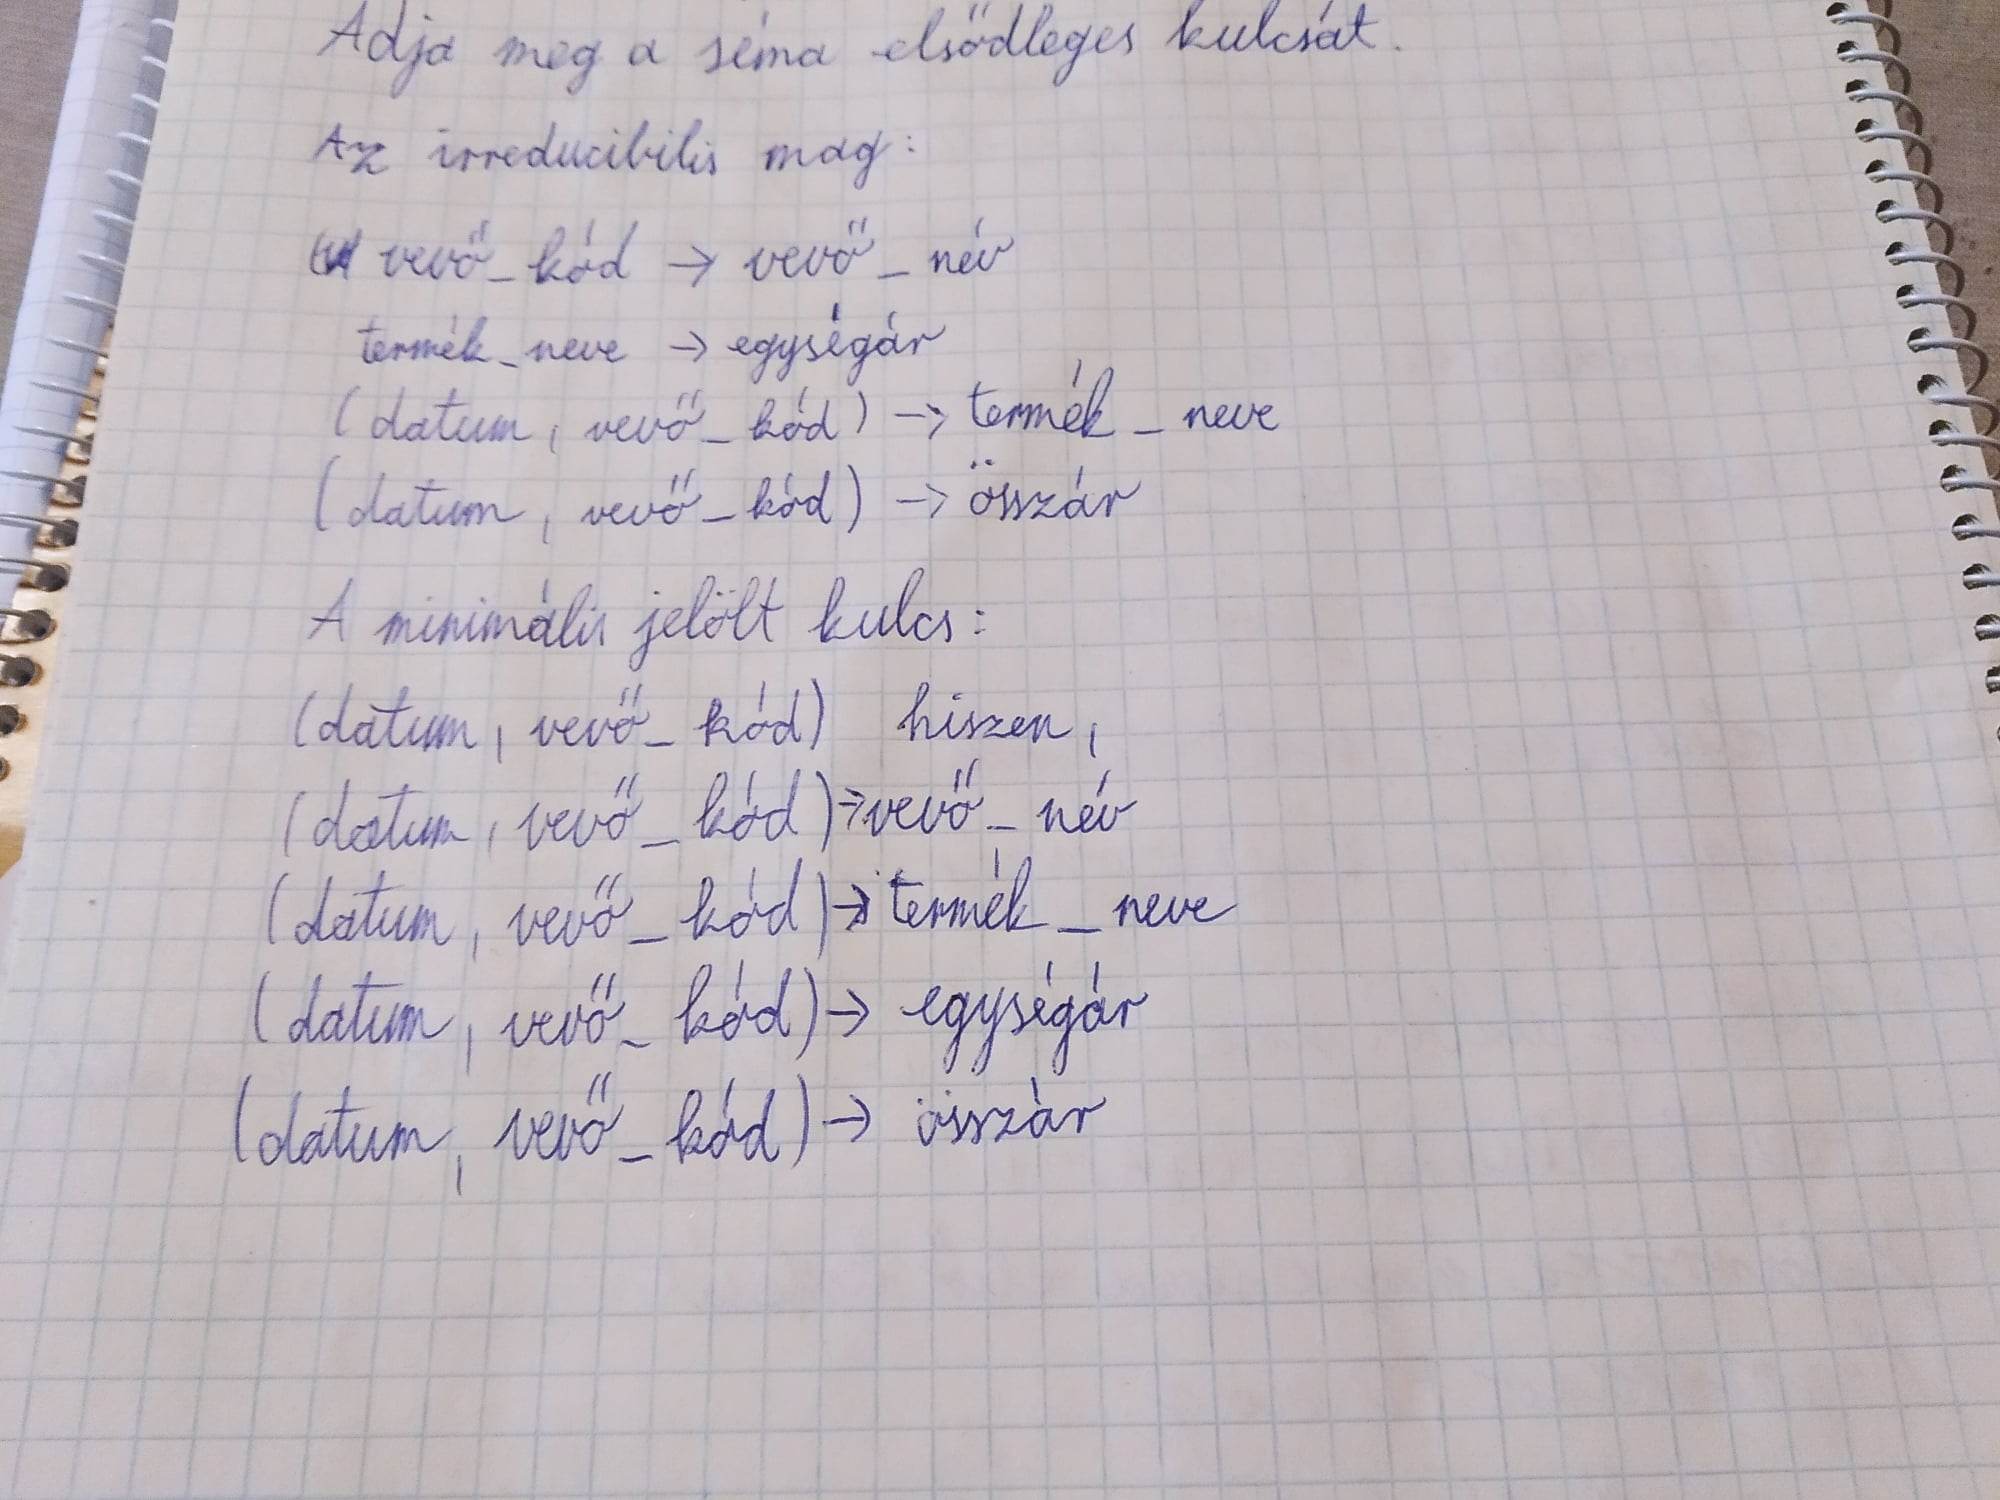 Adja meg a séma elsődleges kulcsát.
Az irreducibilis mag:
vevő_kód → vevő_név
termék_neve → egységár
(datum, vevő_kód) → termék_neve
(datum, vevő_kód) → összár
A minimális jelölt kulcs:
(datum, vevő_kód) hiszen,
(datum, vevő_kód) → vevő_név
(datum, vevő_kód) → termék_neve
(datum, vevő_kód) → egységár
(datum, vevő_kód) → összár